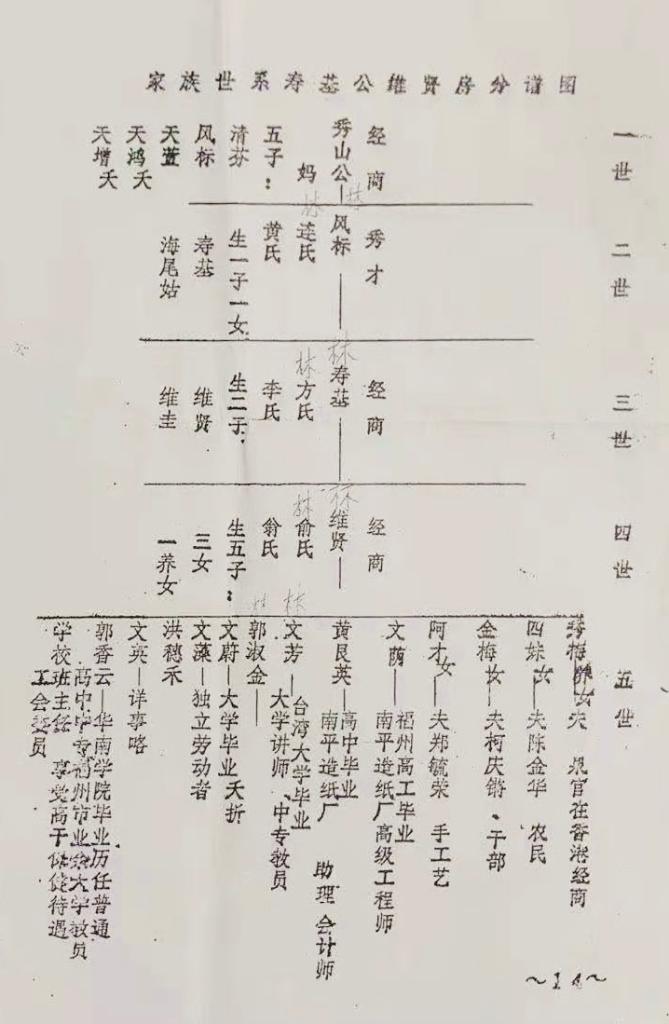 家族世系寿基公维贤房分谱图
一世
经商
秀山公
妈
五子：
清芬
风标
天萱
天鸿夭
天增夭
二世
秀才
风标
连氏
黄氏
生一子一女
寿基
海尾姑
三世
经商
林寿基
林方氏
李氏
生二子
维贤
维圭
四世
经商
林维贤
林俞氏
翁氏
生五子：
三女
一养女
五世
秀梅养女夫 官在香港经商
四妹女—夫陈金华 农民
金梅女—夫柯庆锵、干部
阿才女—夫郑毓荣 手工艺
文荫—福州高工毕业
南平造纸厂高级工程师
黄艮英—高中毕业
南平造纸厂
助理会计师
林文芳—台湾大学毕业
大学讲师、中专教员
郭淑金—
文蔚—大学毕业 夭折
文藻—独立劳动者
洪穗禾
文英—详事略
郭香云—华南学院毕业历任普通
高中中专福州市业余大学教员
学校班主任 享受高干保健待遇
工会委员
～14～